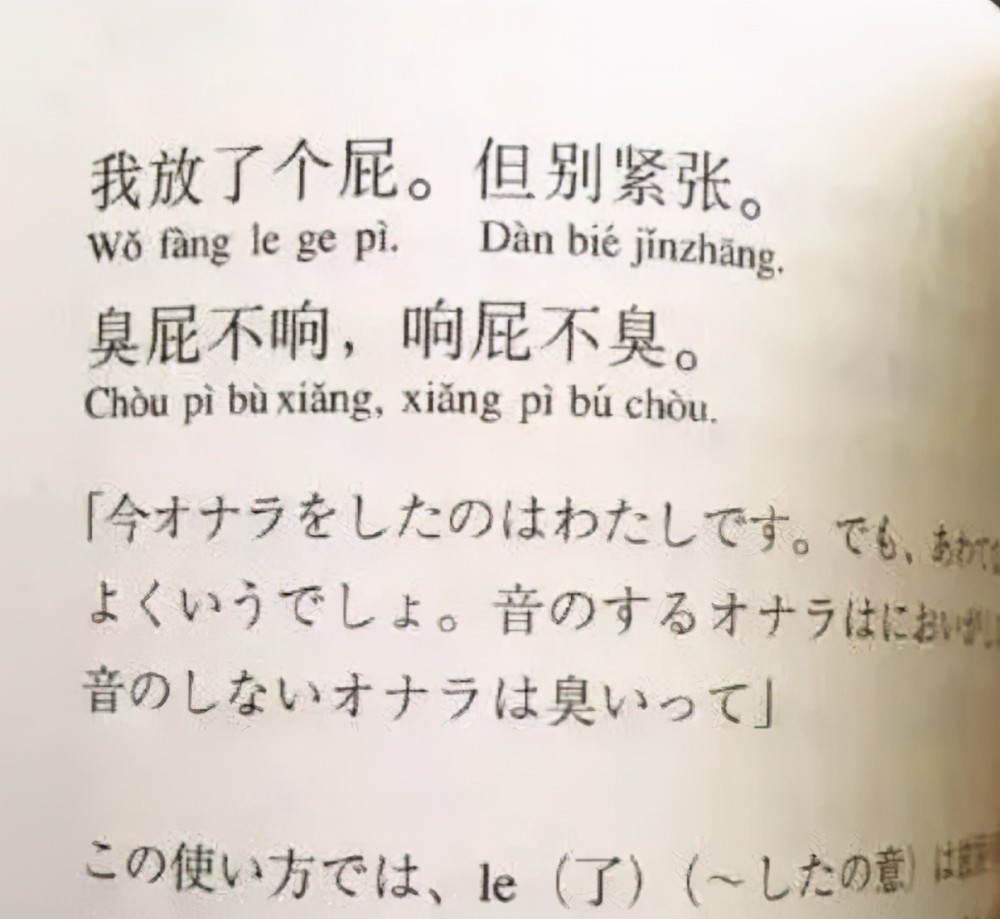 我放了个屁。但别紧张。
Wǒ fàng le ge pì. Dàn bié jǐnzhāng.
臭屁不响，响屁不臭。
Chòu pì bù xiǎng, xiǎng pì bú chòu.
「今オナラをしたのはわたしです。でも、あわて
よくいうでしょ。音のするオナラはにおいが
音のしないオナラは臭いって」
この使い方では、le（了）（～したの意）は